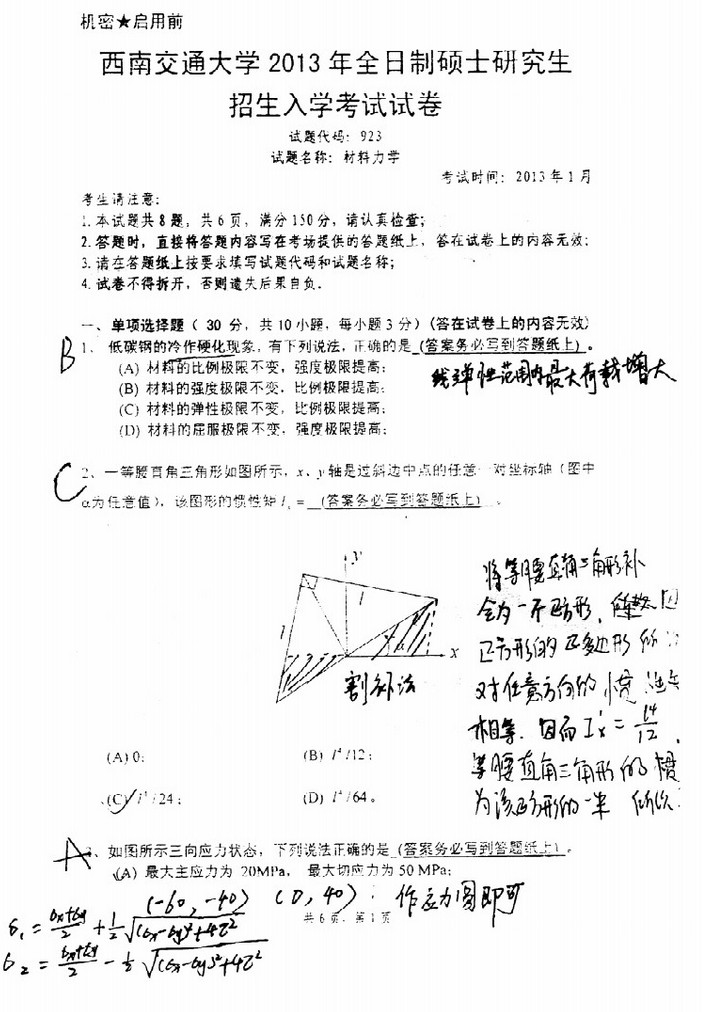 机密★启用前
西南交通大学2013年全日制硕士研究生
招生入学考试试卷
试题代码：923
试题名称：材料力学
考试时间：2013年1月
考生请注意：
1.本试题共8题，共6页，满分150分，请认真检查；
2.答题时，直接将答题内容写在考场提供的答题纸上，答在试卷上的内容无效；
3.请在答题纸上按要求填写试题代码和试题名称；
4.试卷不得拆开，否则遗失后果自负。
一、单项选择题（30分，共10小题，每小题3分）（答在试卷上的内容无效）
B 1、低碳钢的冷作硬化现象，有下列说法，正确的是 (答案务必写到答题纸上) 。
(A) 材料的比例极限不变，强度极限提高；
线弹性范围内最大荷载增大
(B) 材料的强度极限不变，比例极限提高；
(C) 材料的弹性极限不变，比例极限提高；
(D) 材料的屈服极限不变，强度极限提高；
C 2、一等腰直角三角形如图所示，x、y轴是过斜边中点的任意一对坐标轴（图中
α为任意值），该图形的惯性矩Iₓ = (答案务必写到答题纸上) 。
y
l
l
x
割补法
将等腰直角三角形补
全为一个正方形，
正方形的正多边形
对任意方向的惯
相等，因而 Ix' = l4/12，
等腰直角三角形的惯
为该正方形的一半 所以
(A) 0；
(B) l⁴/12；
(C) l⁴/24；
(D) l⁴/64。
A 3、如图所示三向应力状态，下列说法正确的是 (答案务必写到答题纸上) 。
(A) 最大主应力为 20MPa， 最大切应力为 50 MPa；
(-60, -40) (0, 40)： 作应力圆即可
共6页，第1页
σ1 = σx+σy/2 + 1/2 √(σx-σy)²+4τ²
σ2 = σx+σy/2 - 1/2 √(σx-σy)²+4τ²